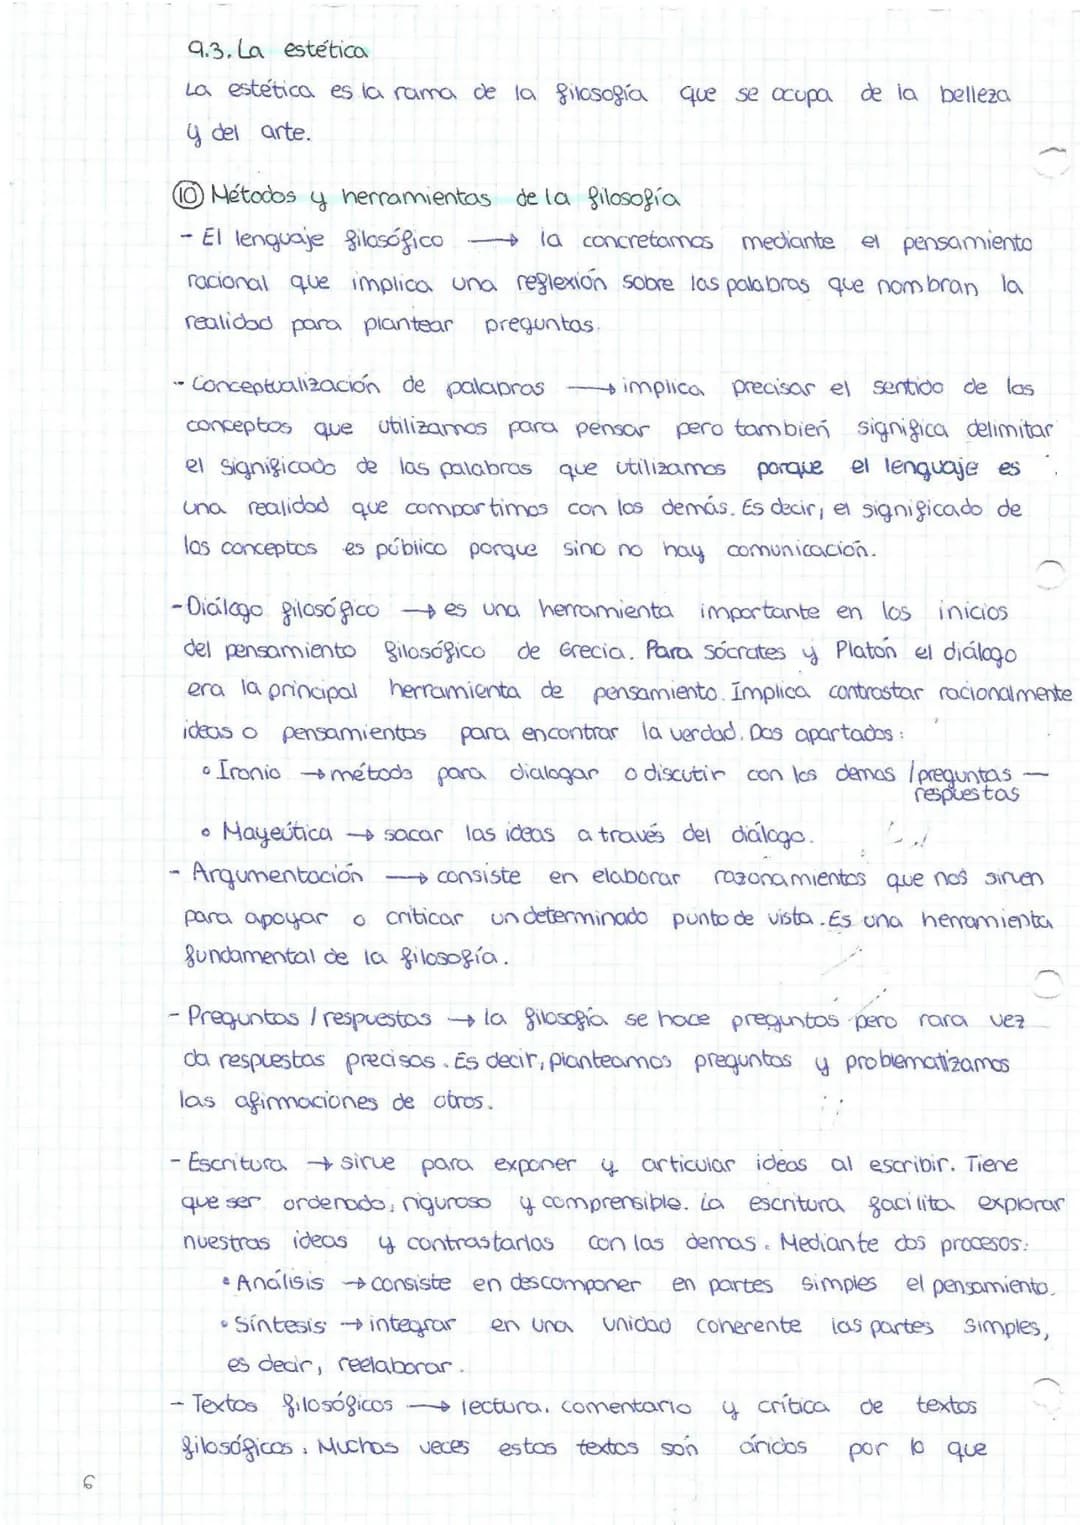 9.3. La estética
La estética es la rama de la filosofía que se ocupa de la belleza
y del arte.
⑩ Métodos y herramientas de la filosofía
- El lenguaje filosófico → la concretamos mediante el pensamiento
racional que implica una reflexión sobre las palabras que nombran la
realidad para plantear preguntas.
- Conceptualización de palabras → implica precisar el sentido de los
conceptos que utilizamos para pensar pero también significa delimitar
el significado de las palabras que utilizamos porque el lenguaje es
una realidad que compartimos con los demás. Es decir, el significado de
los conceptos es público porque sino no hay comunicación.
- Diálogo filosófico → es una herramienta importante en los inicios
del pensamiento filosófico de Grecia. Para Sócrates y Platón el diálogo
era la principal herramienta de pensamiento. Implica contrastar racionalmente
ideas o pensamientos para encontrar la verdad. Dos apartados:
• Ironía → método para dialogar o discutir con los demas / preguntas —
respuestas
• Mayeútica → sacar las ideas a través del diálogo.
- Argumentación → consiste en elaborar razonamientos que nos sirven
para apoyar o criticar un determinado punto de vista. Es una herramienta
fundamental de la filosofía.
- Preguntas / respuestas → la filosofía se hace preguntas pero rara vez
da respuestas precisas. Es decir, planteamos preguntas y problematizamos
las afirmaciones de otros.
- Escritura → sirve para exponer y articular ideas al escribir. Tiene
que ser ordenado, riguroso y comprensible. La escritura facilita explorar
nuestras ideas y contrastarlas con las demas. Mediante dos procesos:
• Análisis → consiste en descomponer en partes simples el pensamiento.
• Síntesis → integrar en una unidad coherente las partes simples,
es decir, reelaborar.
- Textos filosóficos → lectura, comentario y crítica de textos
filosóficos. Muchas veces estos textos són áridos por lo que
6